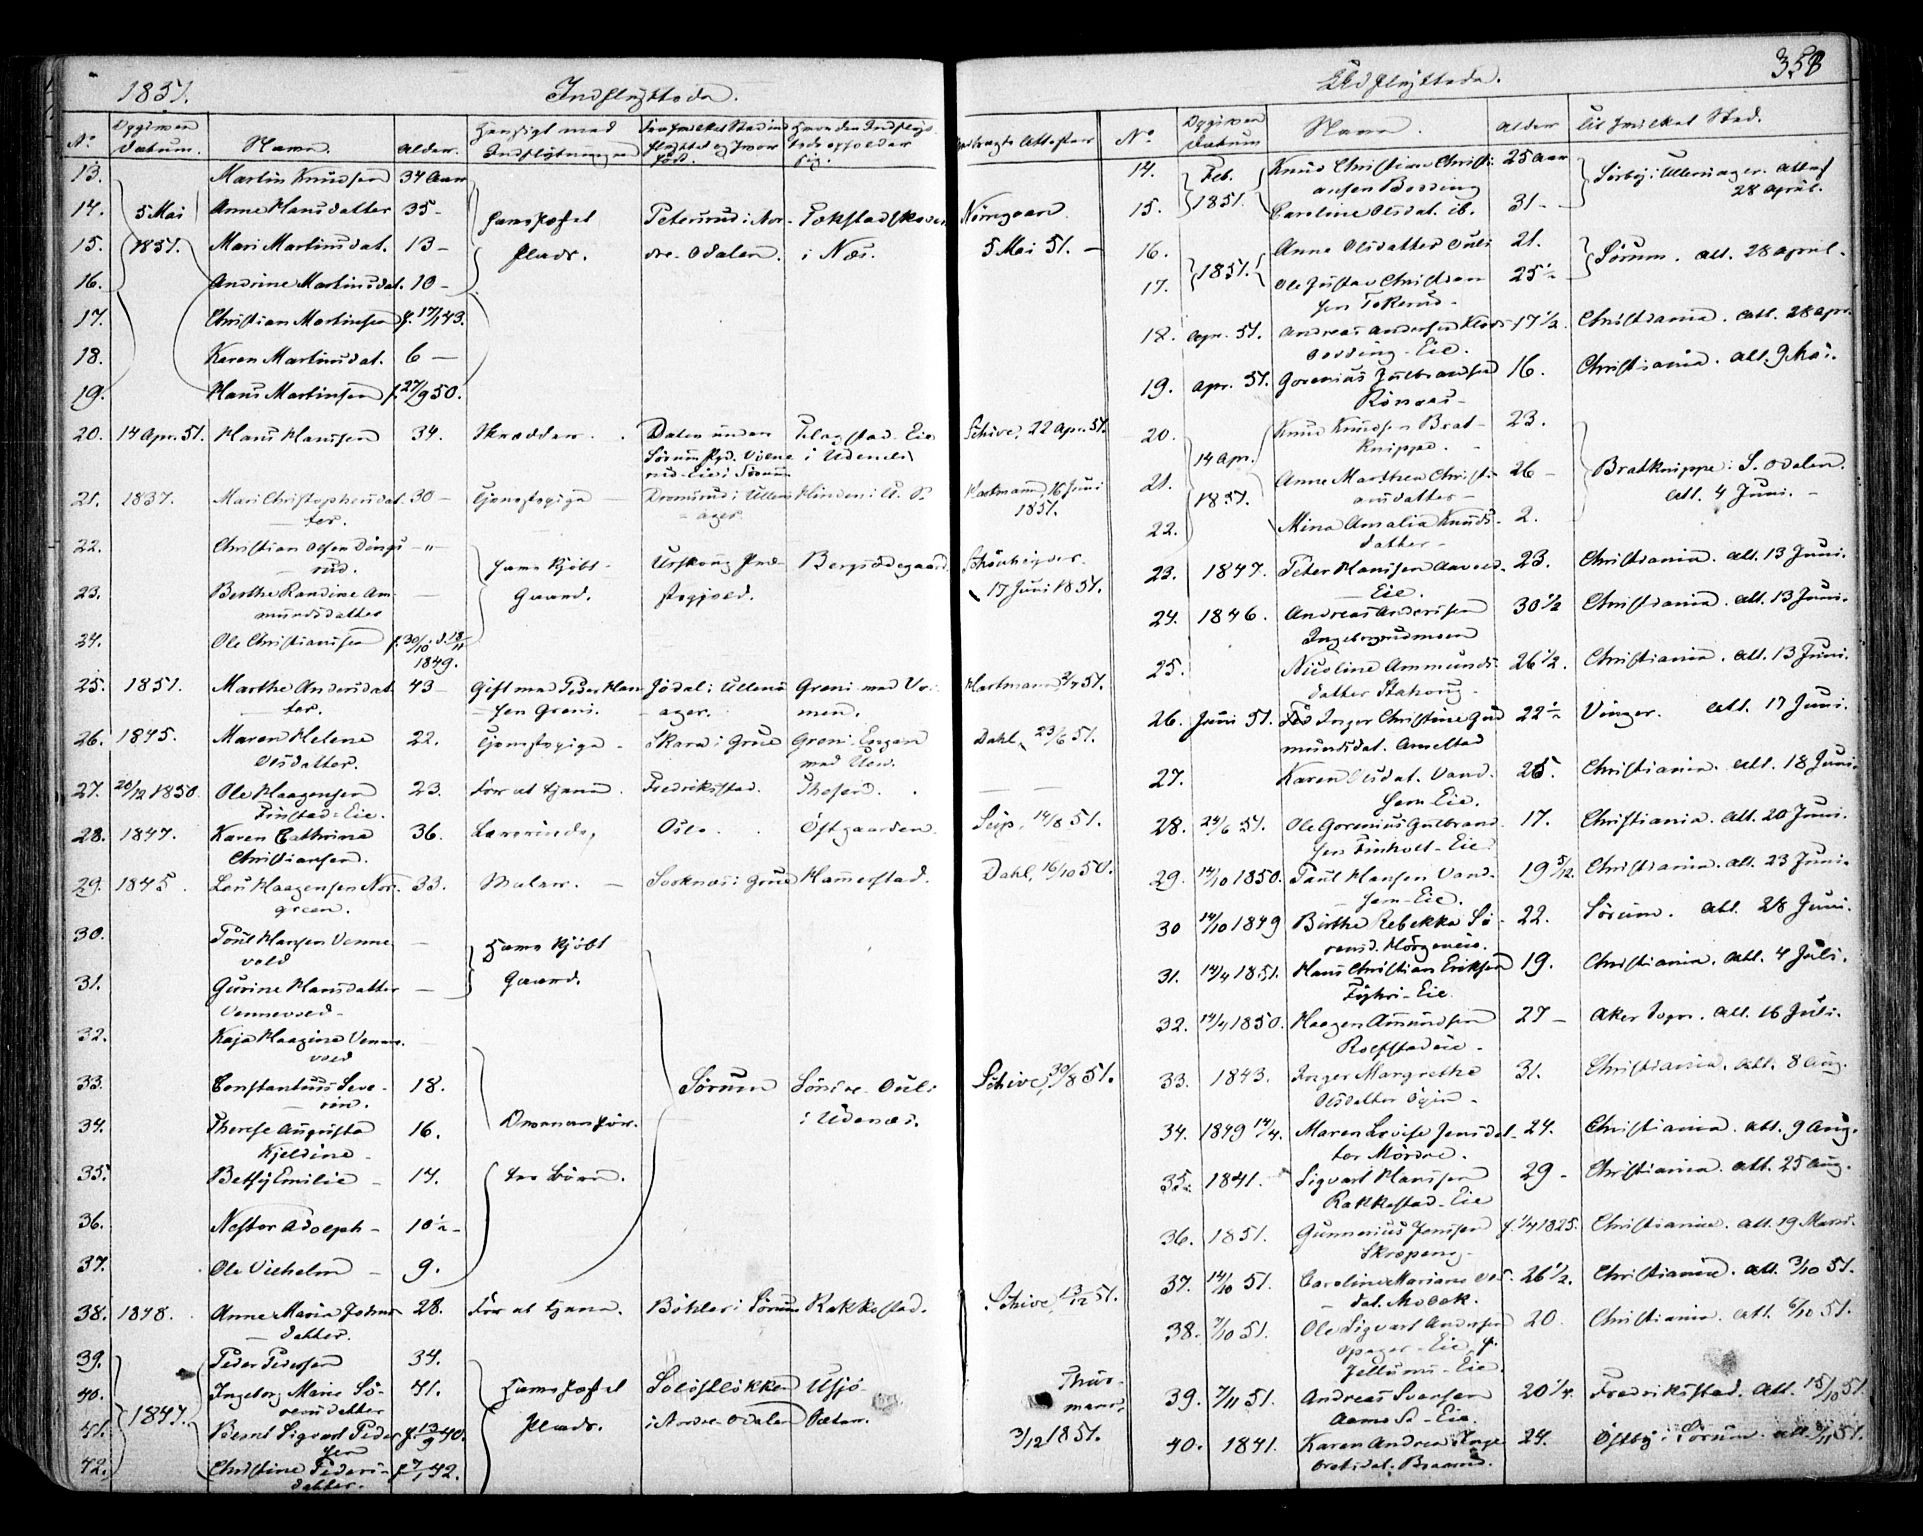 1851.
Indflyttede.
No
Opgiven Datum.
Navn.
Alder.
Hensigt med Indflytningen
Fra hvilket Sted indflyttet og hvor født.
Hvor den Indflyttede opholder sig.
Attester
13. Martin Knudsen 34 Aar
14. 5 Mai Anne Hansdatter 35 - faaet Petersrud i Nor- Nørregaard
15. 1851. Mari Martinsdat. 13 - Plads. dre-Odalen. i Næs. 5 Mai 51. -
16. Andrine Martinsdat. 10 -
17. Christian Martinsen f. 17/1 43.
18. Karen Martinsdat. 6 -
19. Hans Martinsen f. 27/9 50.
20. 14 Apr. 51. Hans Hansen 34. Skrædder. Dalen under Schive, 22 Apr. 51.
Eie i Sørum i Udenes
21. 1837. Mari Christophersdatter. 30 - Tjenestepige - i Ullensager Hartmann, 16 Juni 1851.
22. Christian Olsen - " - have kjøbt Urskoug Præ- Bergsødegaard
23. Berthe Randine Amundsdatter - Gaard. stegjeld. 17 Juni 1851.
24. Ole Christiansen f. 30/10 d. 18/11 1849.
25. 1851. Marthe Andersdatter. 43 - Gift med Peder Hansen Greni. Jødal i Ullensager. Greni med Vormen. Hartmann, 2/7 51.
26. 1845. Maren Helene Olsdatter. 22. Tjenestepige - Skara i Grue Greni-Engen Dahl, 23/6 51.
27. 20/12 1850. Ole Haagensen Finstad-Eie. 23. For at tjene. Fredrikstad. - -
28. 1847. Karen Cathrine Christiansen. 36. Oslo. Østgaarden. Seip, 14/8 51.
29. 1845. Lars Haagensen Norgreen. 33. Maler. - i Grue Hammerstad. Dahl, 16/10 50.
30. Poul Hansen Vennevold - have kjøbt
31. Gurine Hansdatter Vennevold - - Gaard.
32. Kaja Haagine Vennevold
33. Constantius Severin. 18. Sørum Søndre-Ouli Schive, 30/8 51.
34. Therese Augusta Kjeldine - 16. i Udenæs.
35. Bethy Emilie - 14. Børn.
36. Nestor Adolph - 10 1/2 -
37. Ole Vilhelm - 9.
38. 1848. Anne Maria Johnsdatter. 28. For at tjene. Bøhler i Sørum Rakkestad. Schive, 13/12 51.
39. Peder Pedersen 34.
40. Ingeborg Marie Sørensdatter 41. have faaet Soløstløkken Thurmann,
41. 1847. Bernt Sigvart Pedersen f. 13/9 40. Plads. i Nordre-Odalen 3/12 1851.
42. Christine Pedersdatter. f. 7/1 42.
Udflyttede.
358
No
Opgiven Datum
Navn.
Alder
til hvilket Sted.
14. Feb. Knud Christian Christiansen Borring 25 Aar Sørby i Ullensager. Att. af 28 April.
15. 1851. Caroline Olsdat. ib. 31 -
16. Anne Olsdatter Ouli 21. Sørum. Att. 28 April.
17. 1851. Ole Gustav Christiansen Tokerud - 25 1/2
18. Apr. 51. Andreas Andersen - Eie. 17 1/2. Christiania. Att. 28 Apr.
19. Apr. 51. Gorenius Gulbrandsen Rønaas - 16. Christiania. Att. 9 Mai.
20. 14 Apr. Knud Knudsen Bratknippe. - 23. Bratknippe i S. Odalen.
21. 1851. Anne Marthea Christiansdatter - 26 - Att. 4 Juni. -
22. Mina Amalia Knudsdatter - 2.
23. 1847. Peter Hansen Aavold - Eie. 23. Christiania. Att. 13 Juni.
24. 1846. Andreas Andersen Ingeborgrudmoen 30 1/2 Christiania. Att. 13 Juni.
25. Nicoline Ammundsdatter 26 1/2. Christiania. Att. 13 Juni.
26. Juni 51. Inger Christine Gudmundsdat. 22 1/2 Vinger. Att. 17 Juni.
27. Karen Olsdat. Vandsem-Eie. 25. Christiania. Att. 18 Juni.
28. 24/6 51. Ole Gorenius Gulbrandsen Finholt-Eie. 17. Christiania. Att. 20 Juni.
29. 14/10 1850. Paul Hansen Vandsem-Eie. 19 5/12. Christiania. Att. 23 Juni.
30 14/10 1849 Birthe Rebekka Sørensd. 22. Sørum. Att. 28 Juni.
31. 14/4 1851. Hans Christian Eriksen Føyhri-Eie. 19. Christiania. Att. 4 Juli.
32. 14/4 1850. Haagen Amundsen Rolfstadeie. 27 - Aker Sogn. Att. 16 Juli.
33. 1843. Inger Margrethe Olsdatter 31. Christiania. Att. 8 Aug.
34. 1849 14/4. Maren Lovise Jensdatter Mørdre. 24. Christiania. Att. 9 Aug.
35. 1841. Sigvart Hansen Rakkestad-Eie 29 - Christiania. Att. 25 Aug.
36. 1851. Gunnerius Jensen f. 1/4 1825. Christiania. Att. 19
37. 14/10 51. Caroline Mariane Olsdat. 26 1/2. Christiania. Att. 3/10 51.
38. 7/10 51. Ole Sigvart Andersen Opager-Eie, f. Jellums-Eie. 20. Christiania. Att. 6/10 51.
39. 7/11 51. Andreas Svensen - Eie. 20 1/4. Fredrikstad. Att. 15/10 51.
40. 1841. Karen Andrea Braarud. 24. Østby i Sørum. Att. 51.